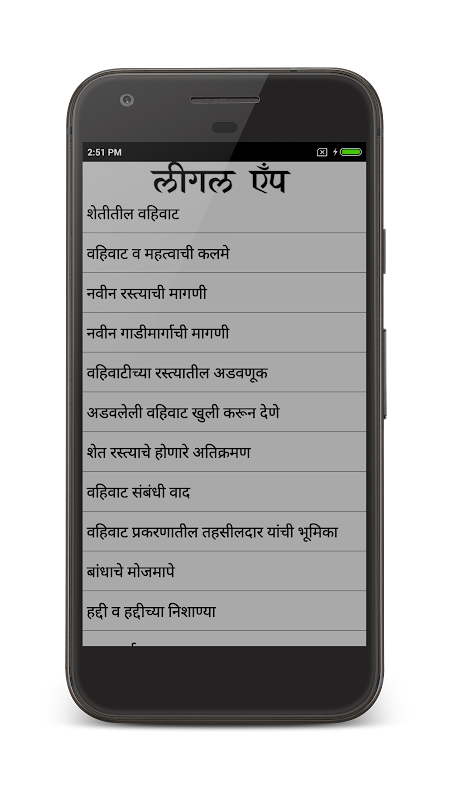 2:51 PM
लीगल ऍप
शेतीतील वहिवाट
वहिवाट व महत्वाची कलमे
नवीन रस्त्याची मागणी
नवीन गाडीमार्गाची मागणी
वहिवाटीच्या रस्त्यातील अडवणूक
अडवलेली वहिवाट खुली करून देणे
शेत रस्त्याचे होणारे अतिक्रमण
वहिवाट संबंधी वाद
वहिवाट प्रकरणातील तहसीलदार यांची भूमिका
बांधाचे मोजमापे
हद्दी व हद्दीच्या निशाण्या